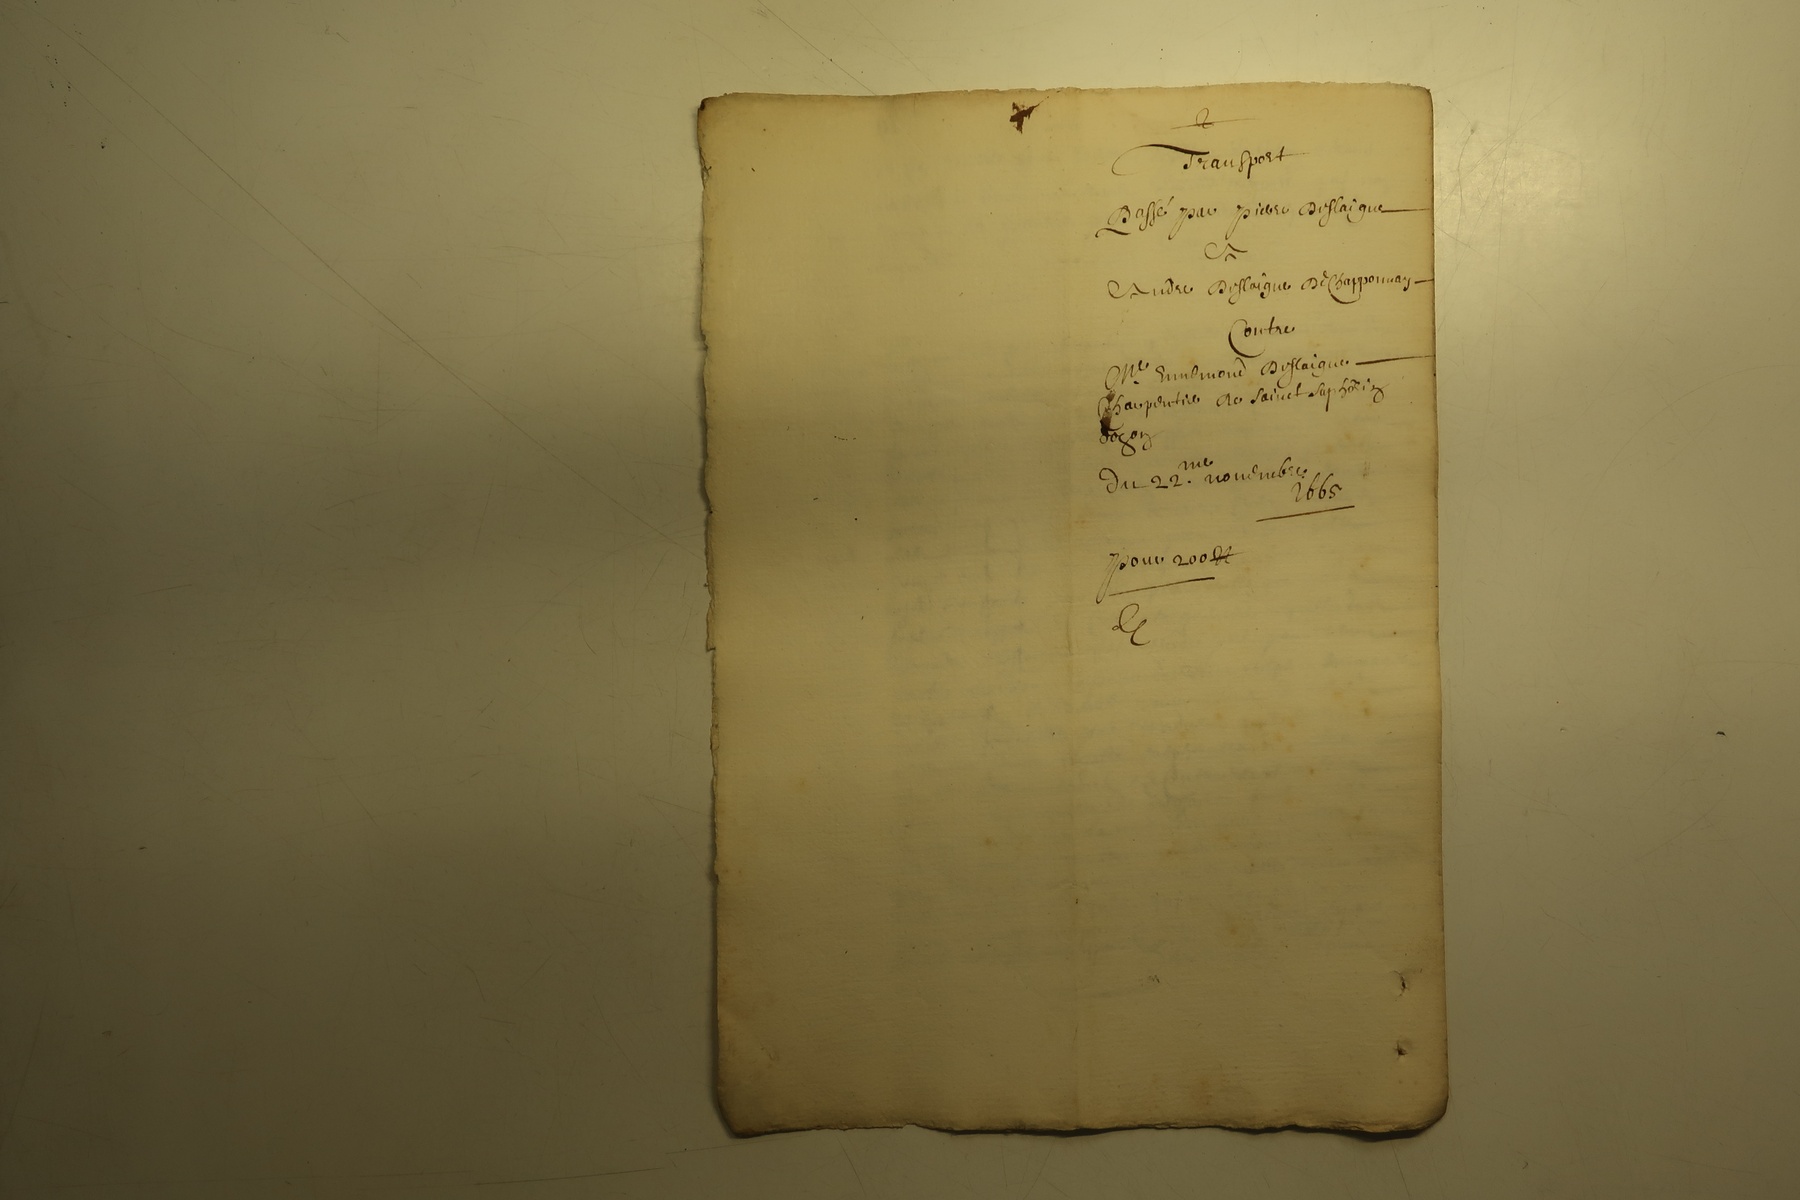 2
Transport
Passé par pierre Deslaigue
A
Andre Deslaigue De Chapponnay
Contre
Me Ennemond Deslaigue
Charpentier de Sainct Saphorin
dozon
Du 22.me novembre
1665
pour 200 ₶